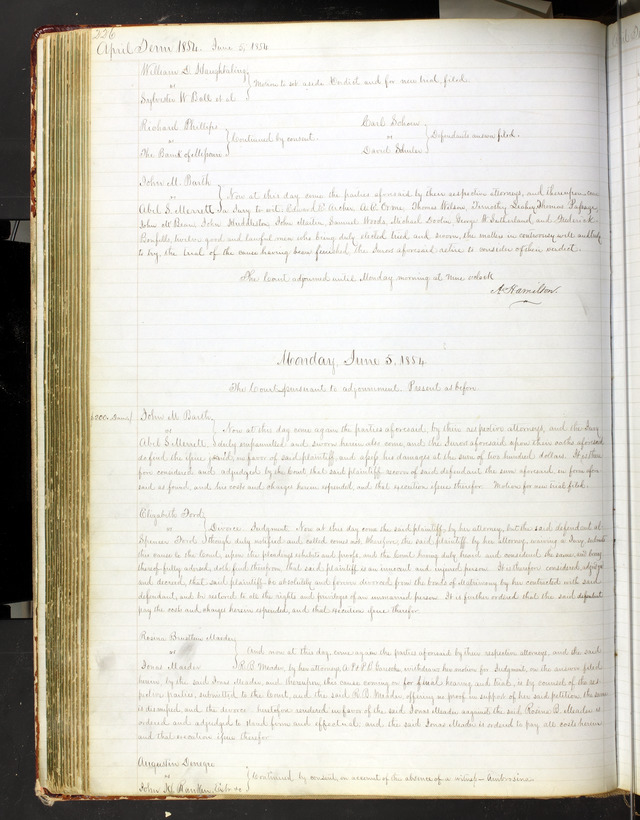 226
April Term 1854. June 5, 1854
William D. Haughtaling
vs
Motion to set aside Verdict and for new trial filed.
Sylvester W. Ball et al
Richard Phillips
vs
Continued by consent.
The Bank of Missouri
Carl Schorn
vs
Defendants answer filed.
David Schuler
John M. Barth
vs
Now at this day come the parties aforesaid by their respective attorneys, and thereupon come
Abel S. Merrett a Jury to wit: Edward C. Archer A. C. Orme, Thomas Wilson, Timothy Leahey, Thomas
John Mc John Huddleston, John Meilin, Samuel Woods, Michael George W. Sutherland and Frederick
Bonfille, twelve good and lawful men who being duly elected tried and sworn, the matters in controversy well and truly
to try, the trial of the cause having been finished the Jurors aforesaid retire to consider of their verdict.
The Court adjourned until Monday morning at nine oclock
A. Hamilton.
Monday, June 5, 1854
The Court, pursuant to adjournment. Present as before.
$200. Damd
John M. Barth
vs
Now at this day come again the parties aforesaid, by their respective attorneys, and the Jury
Abel S. Merrett duly empannelled and sworn herein also come, and the Jurors aforesaid upon their oaths aforesaid
do find the issue joined, in favor of said plaintiff, and assess his damages at the sum of two hundred dollars. It is there-
fore considered and adjudged by the Court that said plaintiff recover of said defendant the sum aforesaid in form afore
said as found, and his costs and charges herein expended, and that execution issue therefor. Motion for new trial filed.
Elizabeth Ford
vs
Divorce. Judgment. Now at this day come the said plaintiff, by her attorney, but the said defendant al-
Spencer Ford though duly notified and called comes not, therefore, the said plaintiff by her attorney, waiving a Jury, submits
this cause to the Court, upon the pleadings exhibits and proofs, and the Court having duly heard and considered the same and being
thereof fully advised, doth find therefrom, that said plaintiff is an innocent and injured person. It is therefore considered, adjudged
and decreed, that said plaintiff be absolutely and forever divorced from the bonds of Matrimony by her contracted with said
defendant, and be restored to all the rights and privileges of an unmarried person. It is further ordered that the said defendant
pay the costs and charges herein expended, and that execution issue therefor.
Rosine Meader
vs
And now at this day, come again the parties aforesaid by their respective attorneys, and the said
Jonas Meader R. B. Meader, by her attorneys A. P. & P. B. Garesche, withdraws her motion for Judgment, on the answer filed
herein, by the said Jonas Meader, and thereupon, this cause coming on for final hearing and trial, is by counsel of the res-
pective parties, submitted to the Court, and the said R. B. Meader, offering no proof in support of her said petition, the same
is dismissed, and the divorce heretofore rendered in favor of the said Jonas Meader against the said Rosine B. Meader is
ordered and adjudged to stand firm and effectual, and the said Jonas Meader is ordered to pay all costs herein
and that execution issue therefor.
Augustin Senegre
vs
Continued by consent, on account of the absence of a witness – Ambrosina
John K. Rankin